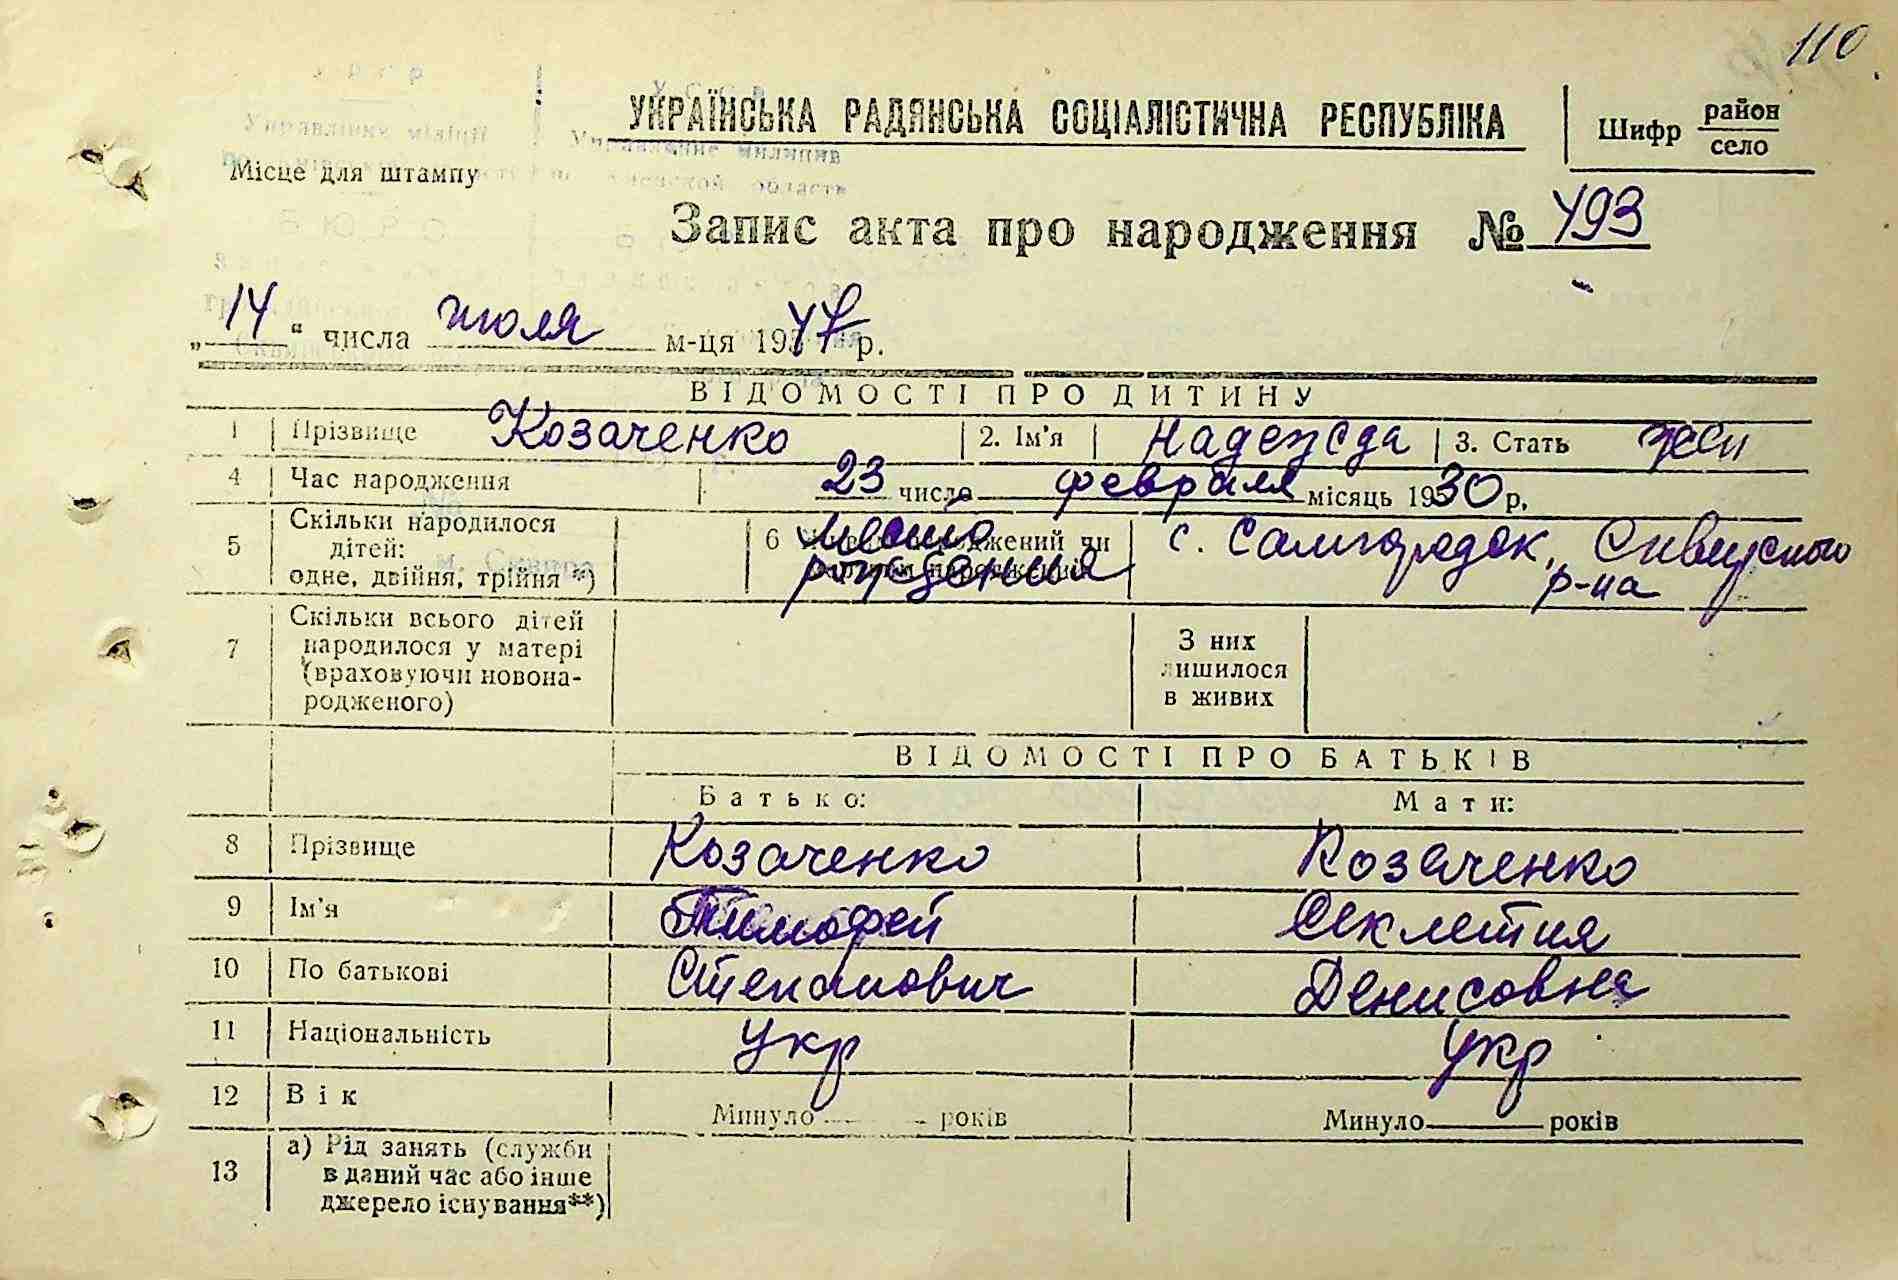 110
УКРАЇНСЬКА РАДЯНСЬКА СОЦІАЛІСТИЧНА РЕСПУБЛІКА
Шифр район
село
Місце для штампу
Запис акта про народження № 493
„14" числа июля м-ця 1947 р.
ВІДОМОСТІ ПРО ДИТИНУ
1 Прізвище Козаченко 2. Ім'я Надежда 3. Стать жен
4 Час народження 23 число февраля місяць 1930 р.
5 Скільки народилося дітей: одне, двійня, трійня *) 6 Место рождения с. Самгородок, Сквирского р-на
м. Сквира
7 Скільки всього дітей народилося у матері (враховуючи новона-родженого) З них лишилося в живих
ВІДОМОСТІ ПРО БАТЬКІВ
Батько: Мати:
8 Прізвище Козаченко Козаченко
9 Ім'я Тимофей Секлетия
10 По батькові Степанович Денисовна
11 Національність Укр Укр
12 Вік Минуло років Минуло років
13 а) Рід занять (служби
в даний час або інше
джерело існування**)